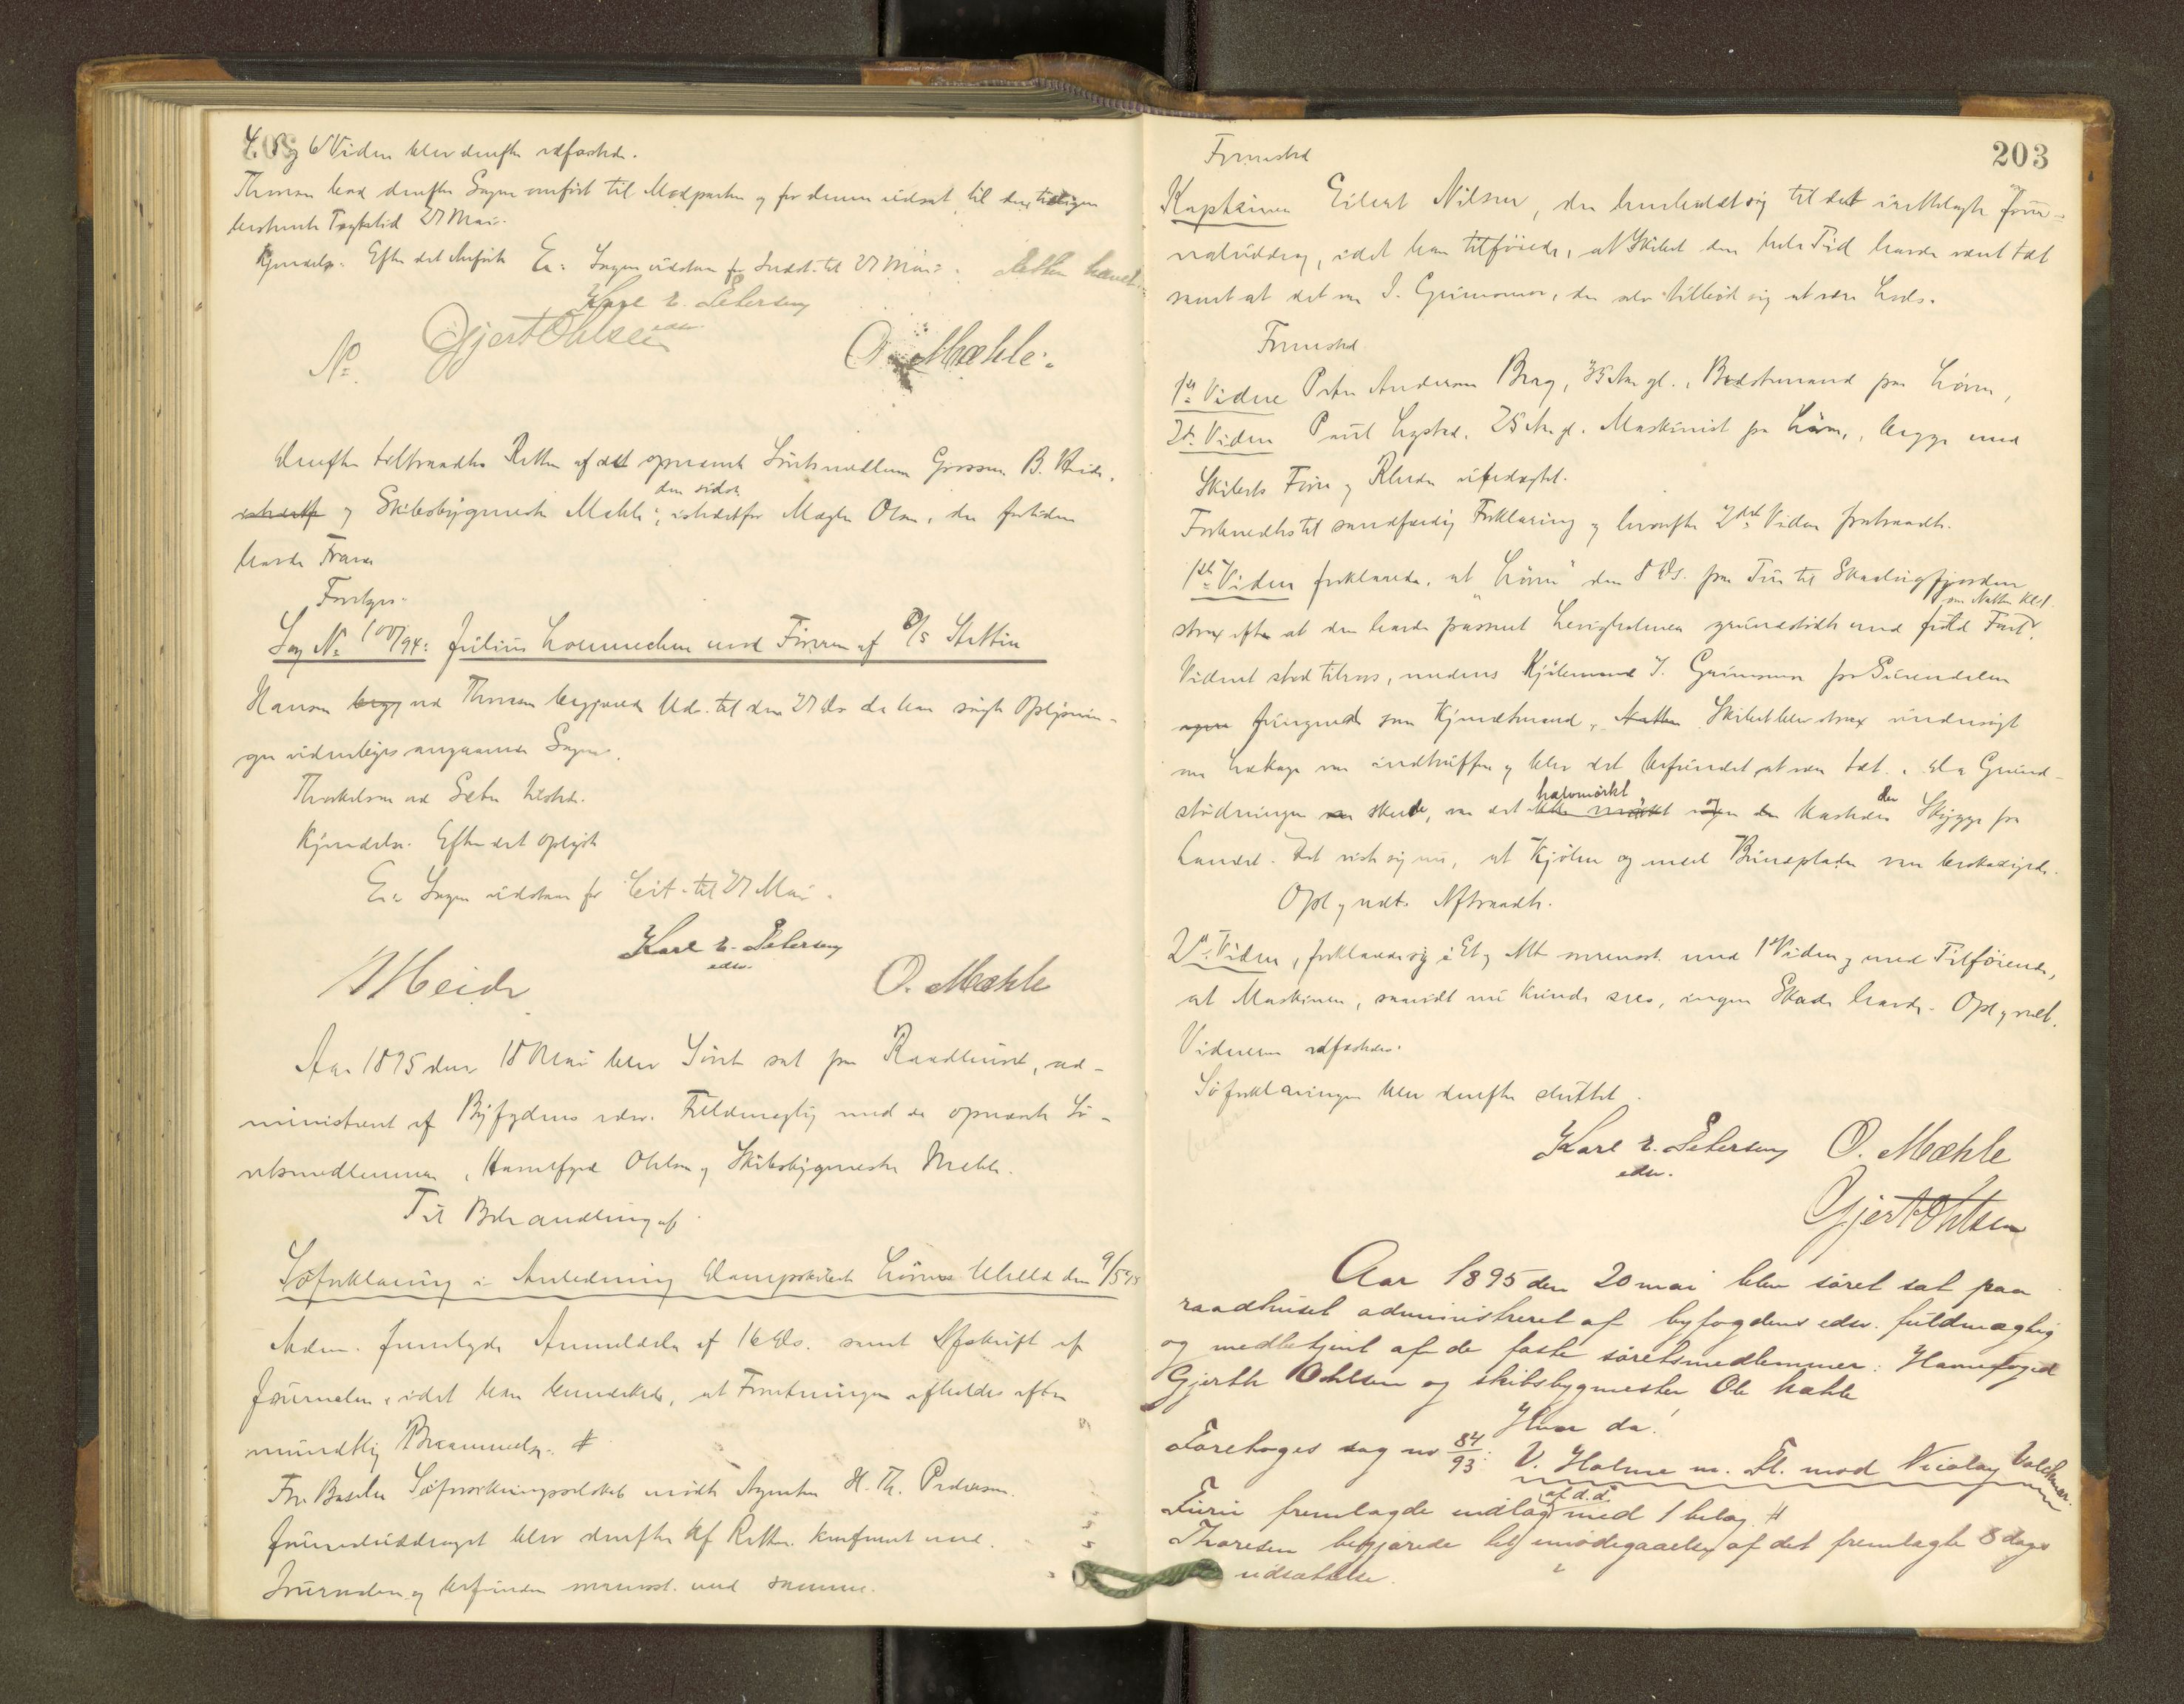 4, 5 og 6 Vidne blev derefter edfæstede.
Thoresen bad derefter Sagen anført til Modparten og for denne udsat til den tidligere
berammede Tægtetid 27 Mai.
Kjendelse. Efter det Anførte Er: Sagen udstaar for Indst. til 27 Mai. Retten hævet.
Karl v. Petersen
edsv.
Gjert Ohlsen O. Mæhle.
No
Derefter tiltraadtes Retten af det opnævnte Søretsmedlem Grosserer B. Heide,
og Skibsbygmester Mæhle, den sidste istedetfor Mægler Olsen, der fortiden
havde Travn
Foretages.
Sag No 100/94: Julius Lommechen mod Føreren af D/S Stettin
Hansen ved Thoresen begjærede Uds. til den 27 ds da han søgte Oplysnin-
ger videnligst angaaende Sagen.
Thorkelsen ved Sæter tilsted.
Kjendelse. Efter det oplyste
Er: Sagen udstaar for Cit. til 27 Mai.
Karl v. Petersen
edsv.
B Heide O. Mæhle
Aar 1895 den 18 Mai blev Søret sat paa Raadhuset, ad-
ministreret af Byfogdens edsv. Fuldmægtig med de opnævnte Sø-
retsmedlemmer, Havnefoged Ohlsen og Skibsbygmester Mæhle.
Til Behandling af
Søforklaring i Anledning Dampskibet Lørns Uheld den 9/5 95
Adm. fremlagde Anmeldelse af 16 ds. samt Afskrift af
Journalen, idet han bemærkede, at Forretningen afholdes efter
mundtlig Berammelse. #
For Baseler Søforsikringsselskab mødte Agenten H. Th. Pedersen.
Journaludraget blev derefter af Retten konfereret med
Journalen og befunden overensst. med samme.
203
Fremstod
Kaptainen Eilert Nilsen, der henholdt sig til det indthelagte Jour-
naludrag, idet han tilføiede, at Skibet den hele Tid havde været tæt
samt at det var I. Grimsmo, der selv tilbød sig at være Lods.
Fremstod
1ste Vidne Peter Andersen Berg, 35 Aar gl., Bedstemand paa Lørn,
2det Vidne Paul Lystad, 25 Aar gl. Maskinist paa Lørn, begge med
Skibets Fører og Rheder ubeslægtet.
Formanedes til sandfærdig Forklaring og hvorefter 2det Vidne fratraadte.
1ste Vidne forklarede, at "Lørn" den 8 ds. paa Tur til Skaalvigfjorden
om Natten Kl. 1
strax efter at den havde passeret grundstødte med fuld Fart.
Vidnet stod tilrors, medens Kjølemand I. Grimsmo fra Surendalen
fungerede som Kjendtmand. Skibet blev strax undersøgt
om Lækage var indtruffen og blev det befundet at være tæt. Da Grund-
stødningen skede, var det halvmørkt og kastedes der Skygge fra
Landet. Det viste sig nu, at Kjølen og med Bundpladen var beskadiget.
Opl. og vedt. Aftraadte.
2det Vidne, forklarede sig i Et og Alt overensst. med 1ste Vidne og med Tilføiende,
at Maskinen, saavidt nu kunde sees, ingen Skade havde. Opl. og vedt.
Vidnerne edfæstedes.
Søforklaringen blev derefter sluttet.
Karl v. Petersen O. Mæhle
edsv.
Gjert Ohlsen
Aar 1895 den 20 mai blev søret sat paa
raadhuset administreret af byfogdens edsv. fuldmægtig
og medbetjent af de faste søretsmedlemmer: Havnefoged
Gjerth Ohlsen og skibsbygmester Ole Mæhle
Hvor da!
Foretoges sag no 84/93: V. Holme m. Fl. mod Nicolay Valdemar.
Furu fremlagde indlæg af d.d. med 1 bilag. #
Thoresen begjærede til imødegaaelse af det fremlagte 8 dages
udsættelse.